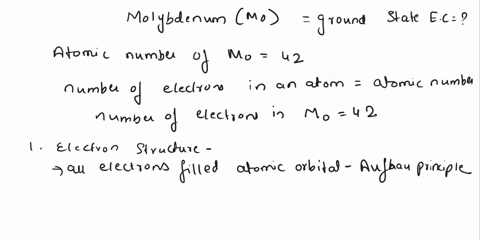 Molybdenum (Mo) = ground State E.C = ?
Atomic number of Mo = 42
number of electrons in an atom = atomic number
number of electron in Mo = 42
1. Electron Structure -
→ all electrons filled atomic orbital - Aufbau principle